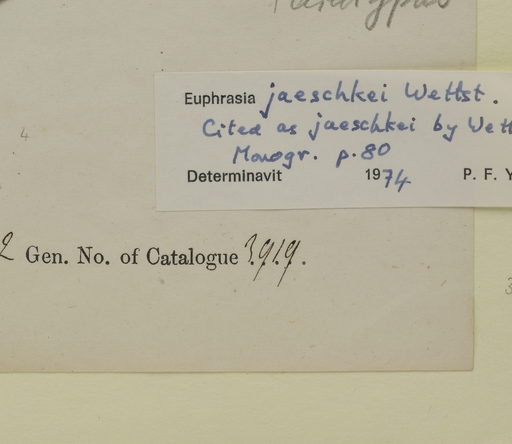 Euphrasia jaeschkei Wettst.
Cited as jaeschkei by Wett
Monogr. p. 80
Determinavit 1974 P. F. Y
4
2 Gen. No. of Catalogue 3919.